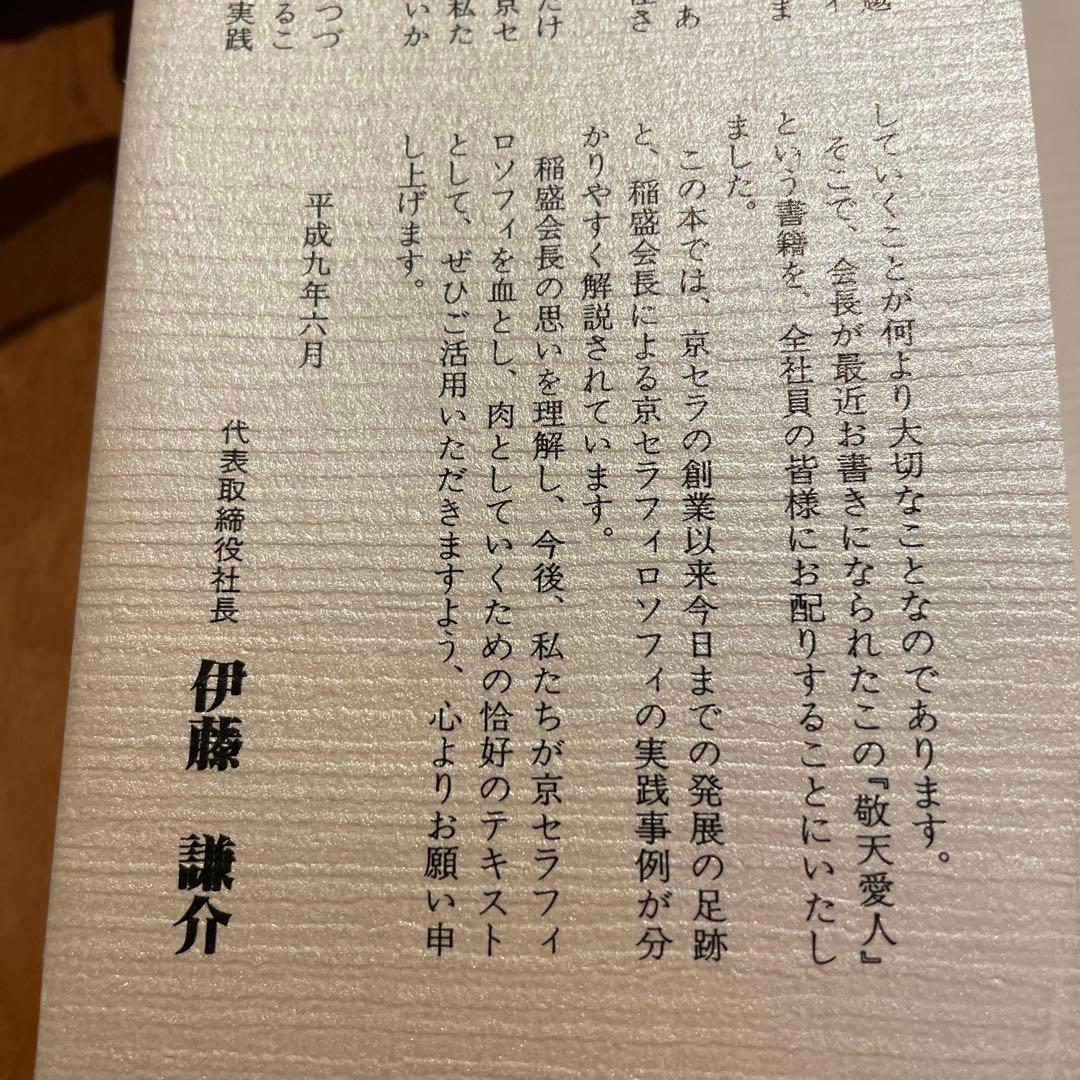 るこ
実践
京セ
私た
いか
だけ
あ
ま
していくことが何より大切なことなのであります。
そこで、会長が最近お書きになられたこの『敬天愛人』
という書籍を、全社員の皆様にお配りすることにいたし
ました。
この本では、京セラの創業以来今日までの発展の足跡
と、稲盛会長による京セラフィロソフィの実践事例が分
かりやすく解説されています。
稲盛会長の思いを理解し、今後、私たちが京セラフィ
ロソフィを血とし、肉としていくための恰好のテキスト
として、ぜひご活用いただきますよう、心よりお願い申
し上げます。
平成九年六月
代表取締役社長 伊藤 謙介